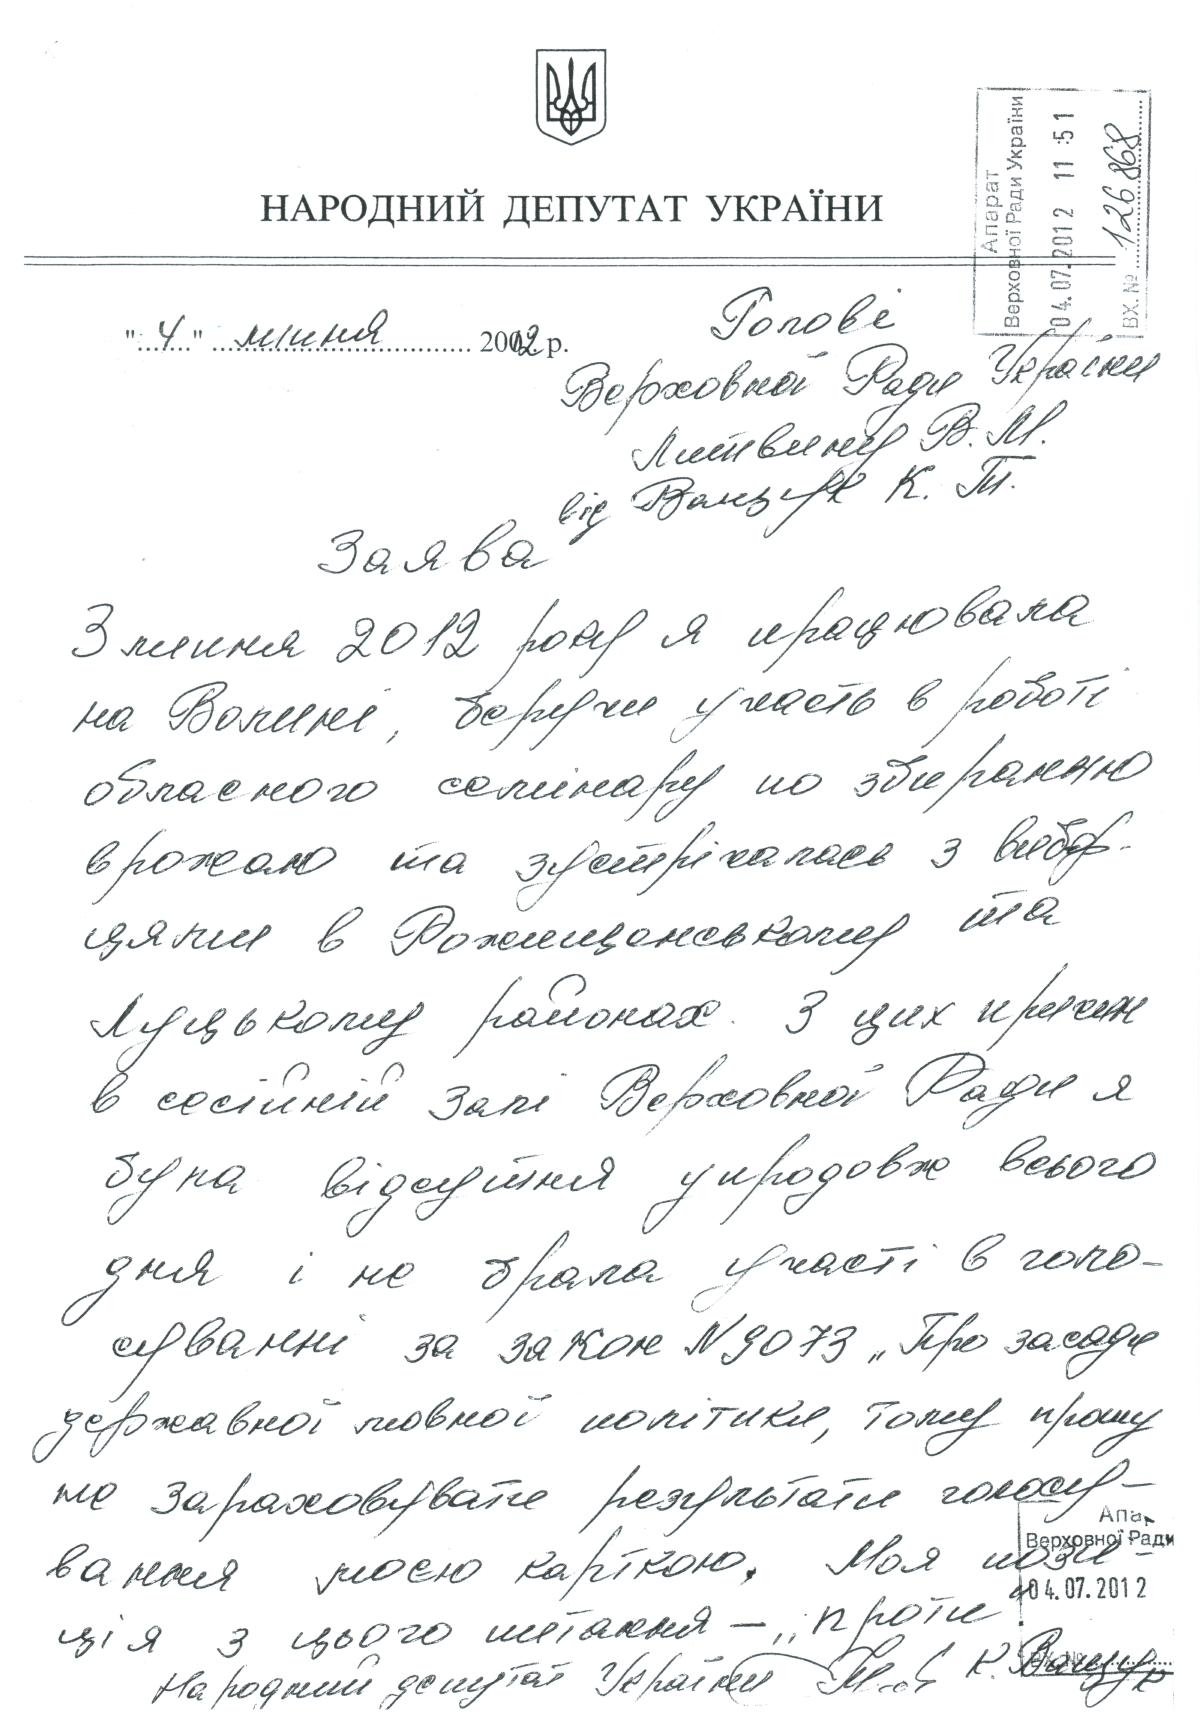 НАРОДНИЙ ДЕПУТАТ УКРАЇНИ
Апарат
Верховної Ради України
04.07.2012 11:51
ВХ. № 126868
"4" липня 2012 р.
Голові
Верховної Ради України
Литвину В. М.
від Ващук К. Т.
Заява
3 липня 2012 року я працювала
на Волині, беручи участь в роботі
обласного семінару по збиранню
врожаю та зустрічалась з вибор-
цями в Рожищенському та
Луцькому районах. З цих причин
в сесійній залі Верховної Ради я
була відсутня упродовж всього
дня і не брала участі в голо-
суванні за закон N 9073 „Про засади
державної мовної політики, тому прошу
не зараховувати результати голосу-
вання моєю карткою. Моя пози-
ція з цього питання – „проти
Народний депутат України К. Ващук
Апар
Верховної Ради
04.07.2012